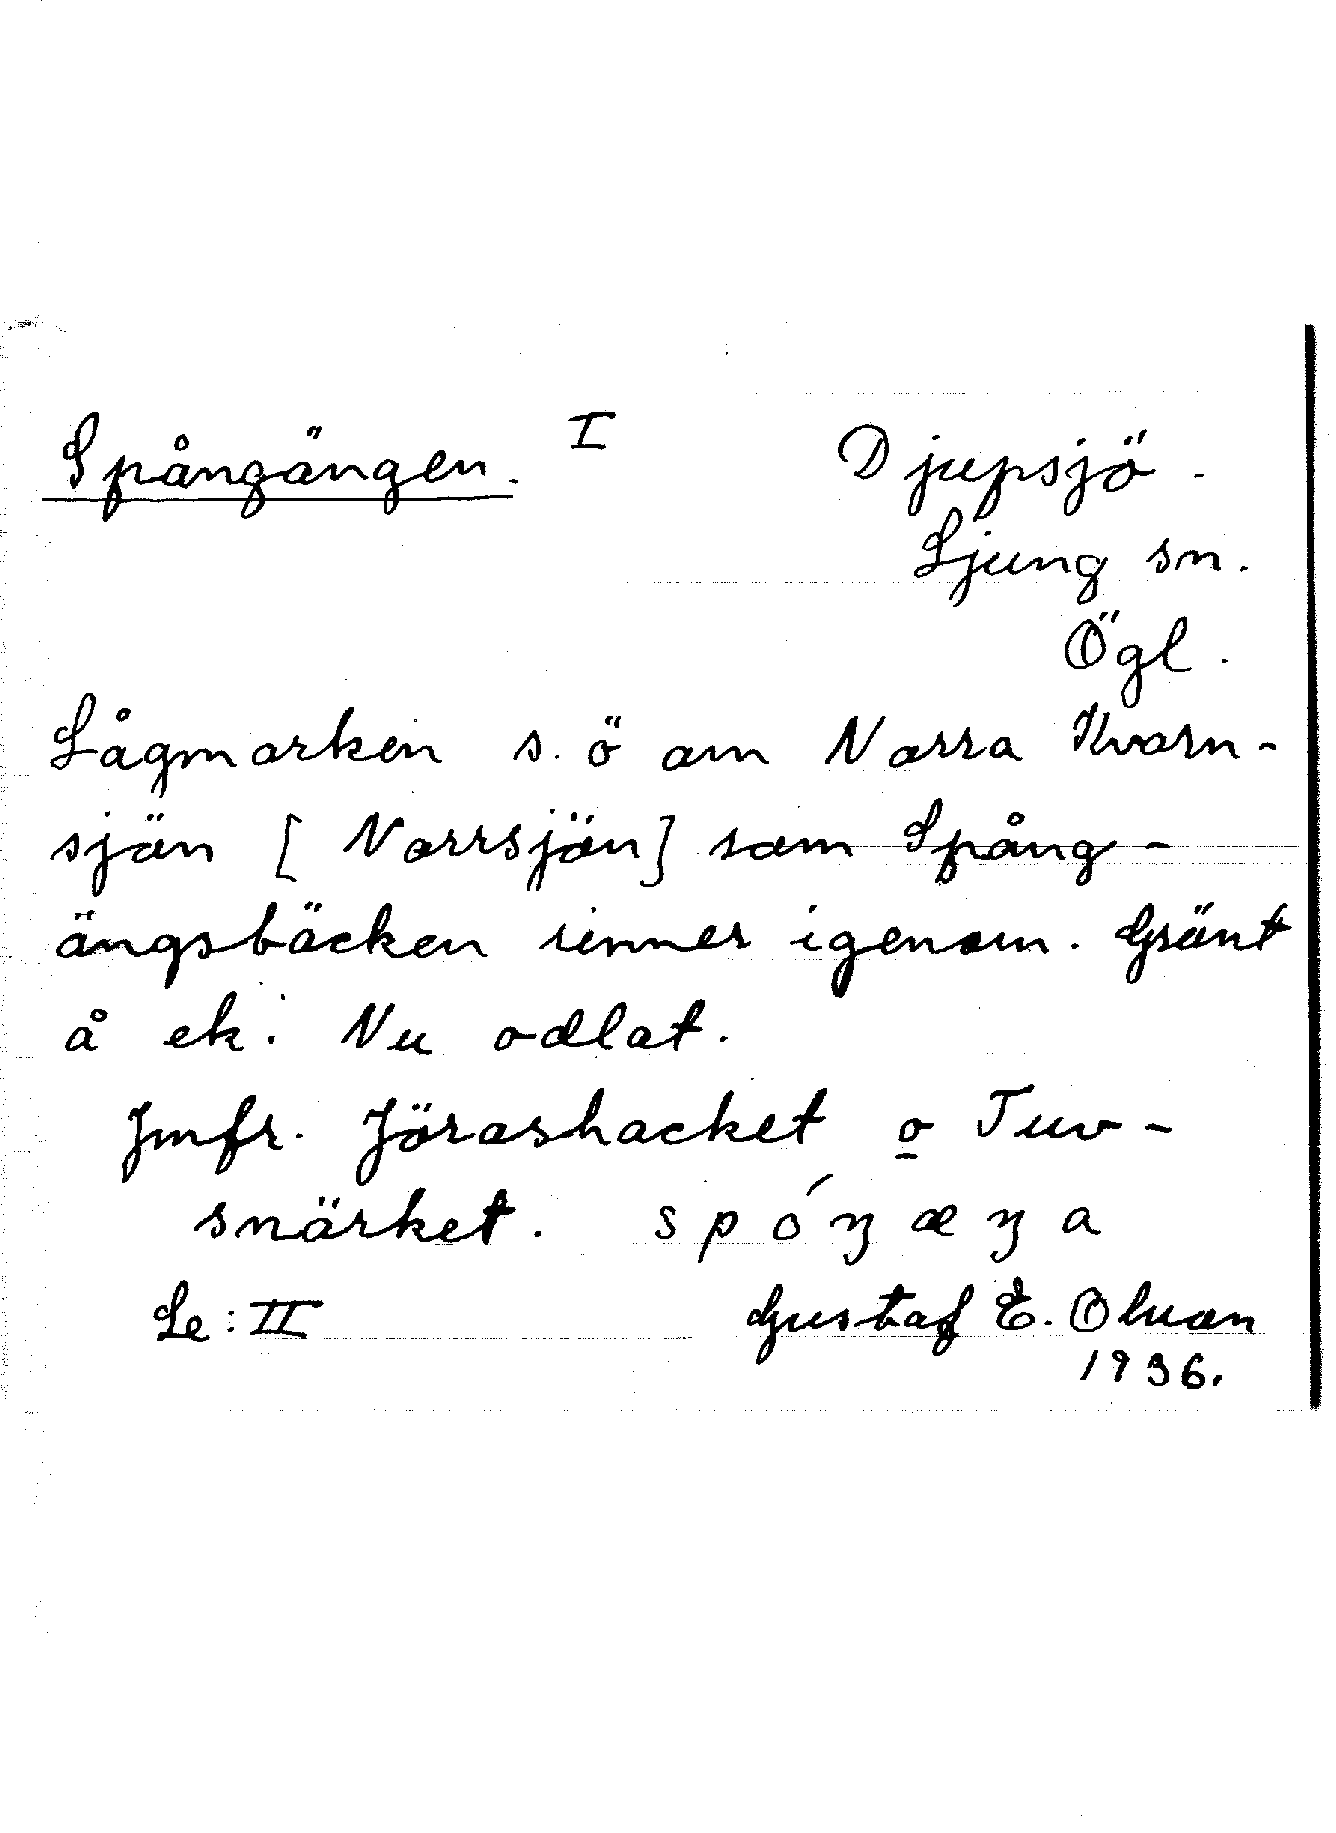 Spångängen. I Djupsjö.
Ljung sn.
Ögl.
Lågmarken s.ö om Norra Kvarn-
sjön [Norrsjön] som Spång-
ängsbäcken rinner igenom. Grönt
å ek. Nu odlat.
Jmfr. Jörashacket o Tuv-
snärket. spóŋæŋa
Se: II Gustaf E.
1936.